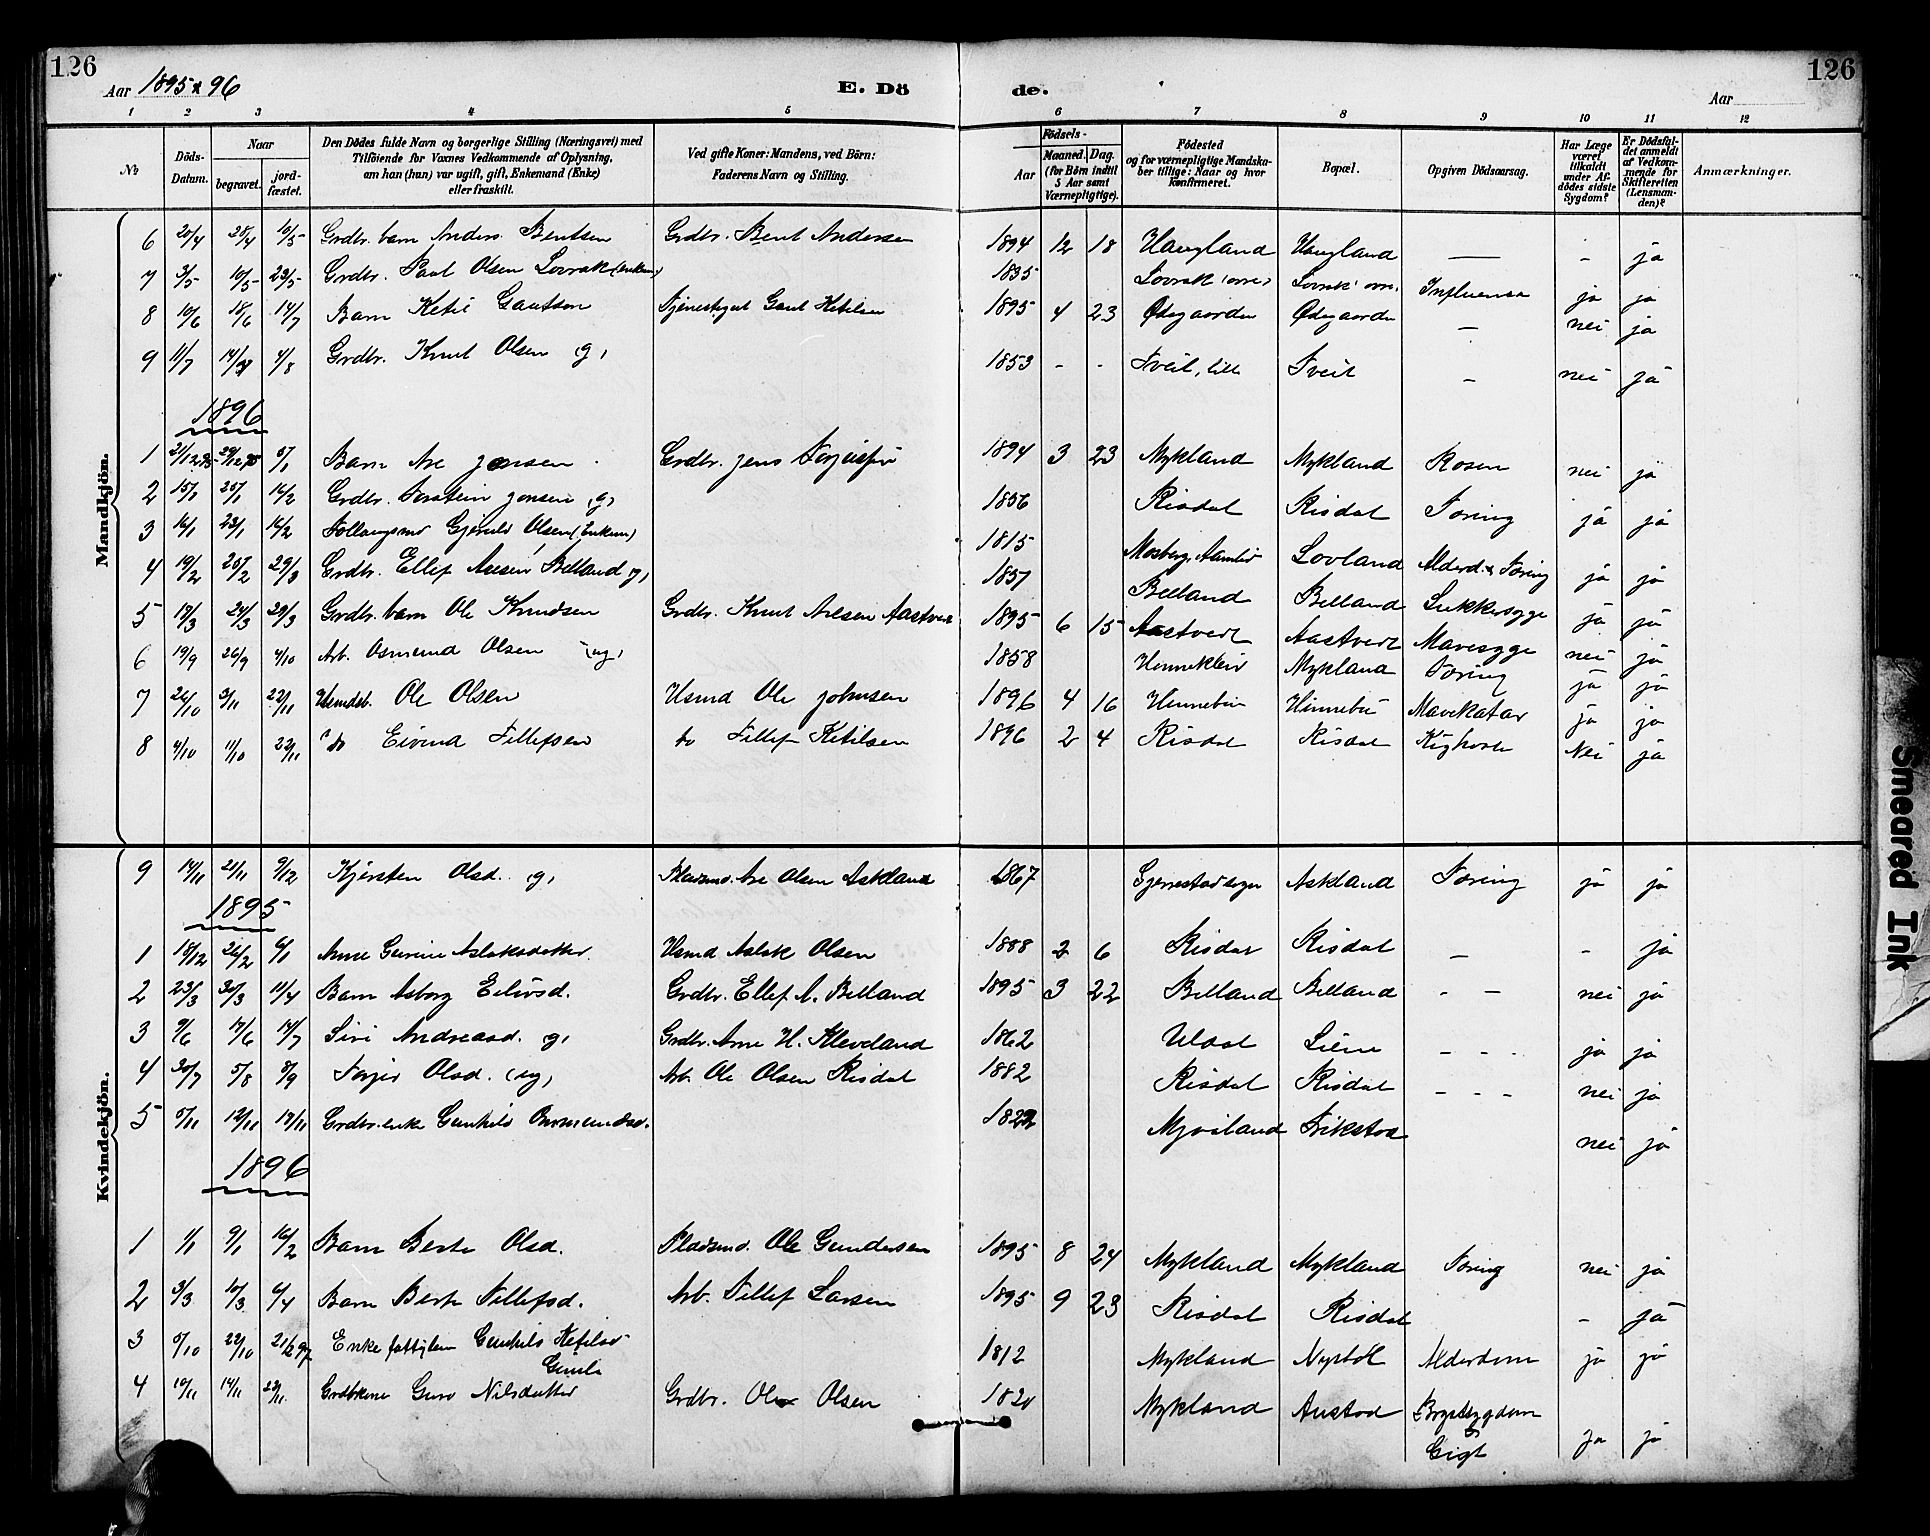 126
126
Aar 1895 & 96
E. Dö
de.
Aar
1 2 3 4 5 6 7 8 9 10 11 12
No
Döds-Datum.
Naar
begravet.
jord-fæstet.
Den Dödes fulde Navn og borgerlige Stilling (Næringsvei) med
Tilföiende for Voxnes Vedkommende af Oplysning,
om han (hun) var ugift, gift, Enkemand (Enke)
eller fraskilt.
Ved gifte Koner: Mandens, ved Börn:
Faderens Navn og Stilling.
Födsels-
Aar
Maaned. Dag.
(for Börn indtil
5 Aar samt
Værnepligtige).
Födested
og for værnepligtige Mandska-
ber tillige: Naar og hvor
konfirmeret.
Bopæl.
Opgiven Dödsaarsag.
Har Læge
været
tilkaldt
under Af-
dödes sidste
Sygdom?
Er Dödsfal-
det anmeldt
af Vedkom-
mende for
Skifteretten
(Lensman-
den)?
Anmærkninger.
Mandkjön.
6 20/4 28/4 10/5 Grdbr. barn Anders Bentsen Grdbr. Bent Andersen 1894 12 18 Haugland Haugland — - ja
7 3/5 10/5 23/5 Grdbr. Paul Olsen Lovrak (enkem) 1835 Lovrak Lovrak Influensa ja ja
8 10/6 18/6 14/7 Barn Ketil Gautson Gaut Ketilsen 1895 4 23 Ødegaarden Ødegaarden — nei ja
9 11/7 14/7 4/8 Grdbr. Knut Olsen g, 1853 - - Tveit, lille Tveit — nei ja
1896
1 21/12 95 29/12 95 5/1 Barn Are Jensen Grdbr. Jens 1894 3 23 Mykland Mykland Rosen nei ja
2 15/1 25/1 16/2 Grdbr. Torstein Jonsen (g) 1856 Risdal Risdal Tæring ja ja
3 16/1 23/1 16/2 Gjeruld Olsen (Enkem) 1815 Lovland Alderd. & Tæring ja ja
4 19/2 25/2 29/3 Grdbr. Ellef Aresen Belland g, 1857 Belland Belland Sukkersyge ja ja
5 17/3 24/3 29/3 Grdbr. barn Ole Knudsen Grdbr. Knut Aresen Aastveit 1895 6 15 Aastveit Aastveit Mavesyge nei ja
6 19/9 26/9 4/10 Arb. Osmund Olsen (ug) 1858 Mykland Tæring ja ja
7 26/10 3/11 22/11 Husmdsb. Ole Olsen Husmd Ole Johnsen 1896 4 16 Hinnebu Hinnebu Mavekatar ja ja
8 4/10 11/10 22/11 do Eivind Tellefsen do Tellef Ketilsen 1896 2 4 Risdal Risdal Kighoste Nei ja
Kvindekjön.
9 14/11 21/11 9/12 Kjersten Olsd. g, Pladsmd. Are Olsen Askland 1867 Gjerrestad sogn Askland Tæring ja ja
1895
1 18/12 26/2 6/1 Anne Gurine Aslaksdatter. Husmd Aslak Olsen 1888 2 6 Risdal Risdal — - ja
2 23/3 30/3 11/4 Barn Asborg Eilivsd. Grdbr. Ellef A. Belland 1895 3 22 Belland Belland - — nei ja
3 9/6 17/6 14/7 Siri Andreasd. g, Grdbr. Arne H. Kleveland 1862 Uldal Liene - - - ja ja
4 30/7 5/8 8/9 Torjer Olsd. (ug) Arb. Ole Olsen Risdal 1882 Risdal Risdal - - - nei ja
5 5/11 12/11 17/11 Grdbr. enke Gunhild 1822 Mjoiland nei ja
1896
1 1/1 9/1 16/2 Barn Berte Olsd. Pladsmd. Ole Gundersen 1895 8 24 Mykland Mykland Tæring nei ja
2 3/3 10/3 6/4 Barn Berte Tellefsd. Arb. Tellef Larsen 1895 9 23 Risdal Risdal - ja
3 5/10 22/10 21/2 97 Enke fattiglem Gunhild Ketilsd 1812 Mykland Nystøl Alderdom ja ja
4 10/11 14/11 22/11 Grdbrkone Guro Nilsdatter Grdbr. Ole Olsen 1820 Mykland Austad Brystsygdom
Gigt ja ja
Smeared Ink